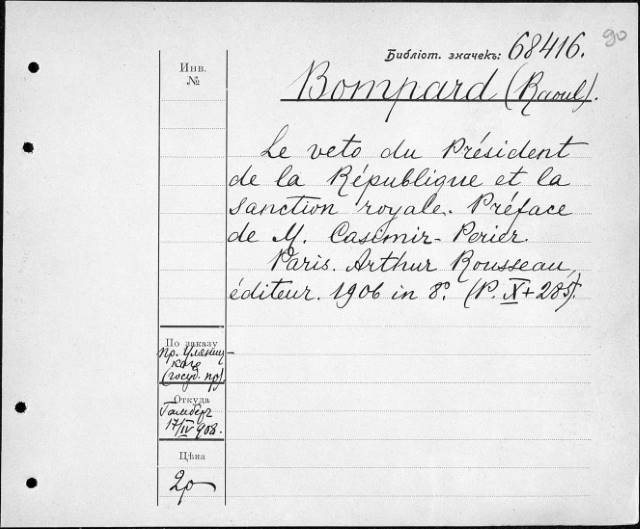 90
Библіот. значекъ: 68416.
Инв.
№
Bompard (Raoul).
Le veto du Président
de la République et la
sanction royale. Préface
de M. Casimir-Perier.
Paris. Arthur Rousseau,
éditeur. 1906 in 8°. (P. X+285).
По заказу
пр. Уляниц-
каго
(госуд. пр)
Откуда
Гамберг
17/IV 908.
Цѣна
2р